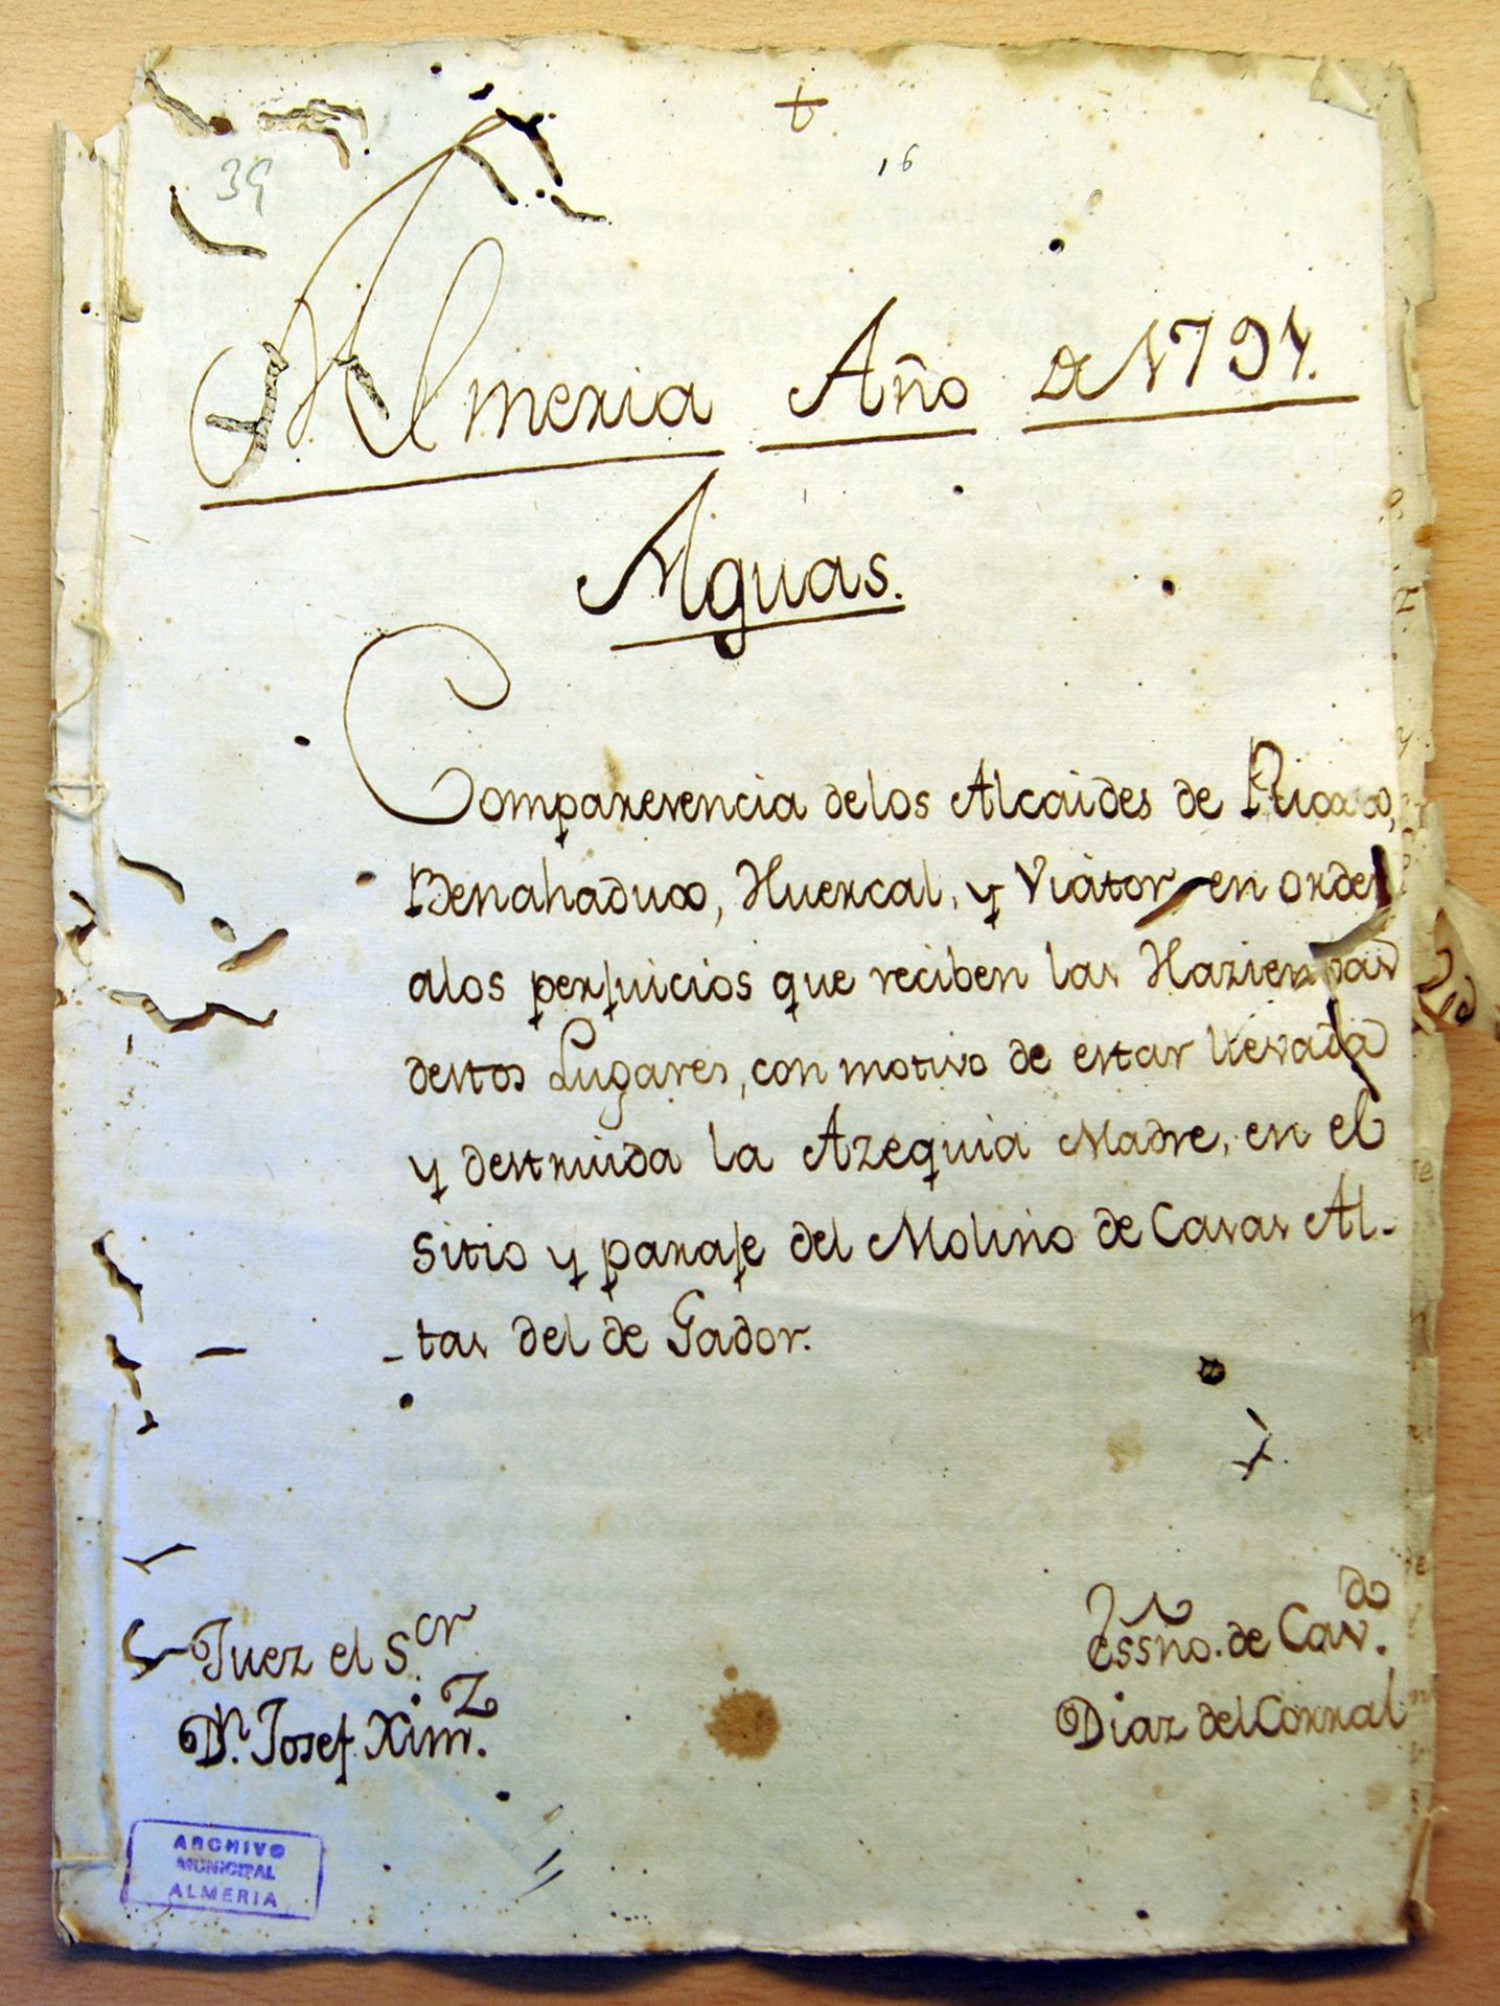 39
16
Almeria Año de 1791.
Aguas.
Comparerencia delos Alcaides de
Benahadux, Huercal, y Viator en orden
alos perjuicios que reciben las Haziendas
destos Lugares, con motivo de estar llevada
y destruida la Azequia Madre, en el
Sitio y paraje del Molino de Casas Al-
-tas del de Gador.
Juez el S.or
Dn. Josef Ximz.
essño. de Cavdo.
Diaz del Corral
ARCHIVO
MUNICIPAL
ALMERIA